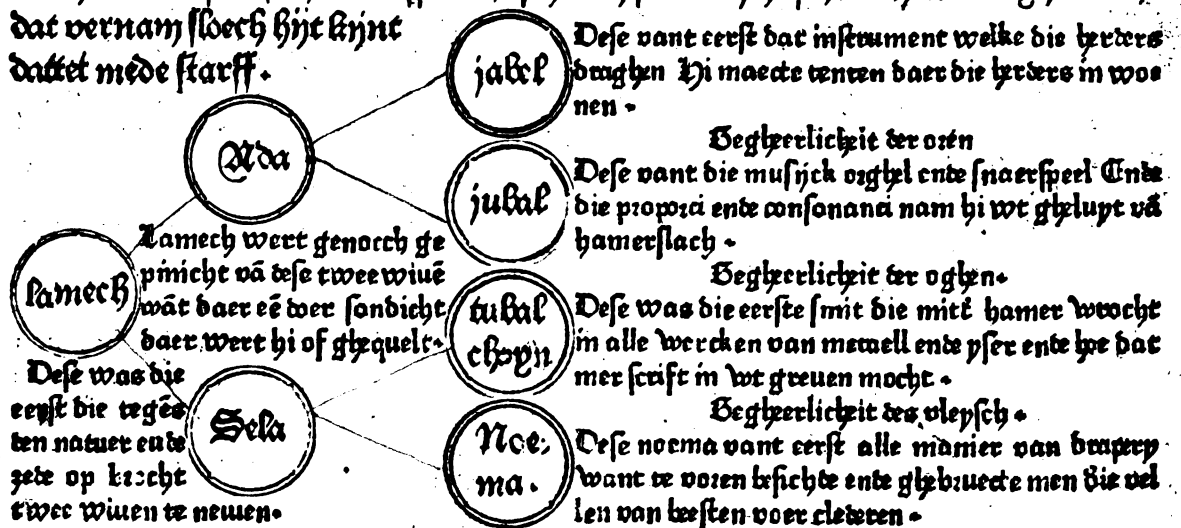 dat vernam sloech hijt kijnt
dattet mede starff.
Ada
Lamech wert genoech ge
pinicht vā dese twee wiuē
wāt daer eē doer sondicht
daer wert hi of ghequelt.
lamech
Dese was die
eerst die tegēs
den natuer ende
zede op brocht
twee wiuen te nemen.
Sela
jabel
Dese vant eerst dat instrument welke die herders
draghen Hi maecte tenten daer die herders in woe
nen.
Begheerlicheit der oren
jubal
Dese vant die musijck orghel ende snaerspeel Ende
die proporci ende consonanci nam hi wt gheluyt vā
hamerslach.
Begheerlicheit der oghen.
tubal
chayn
Dese was die eerste smit die mittē hamer wrocht
in alle wercken van metaell ende yser ende hoe dat
mer scrift in wt greuen mocht.
Begheerlicheit des vleysch.
Noe;
ma.
Dese noema vant eerst alle manier van drapery
want te voren besichde ende ghebruecte men die vel
len van beesten voer clederen.